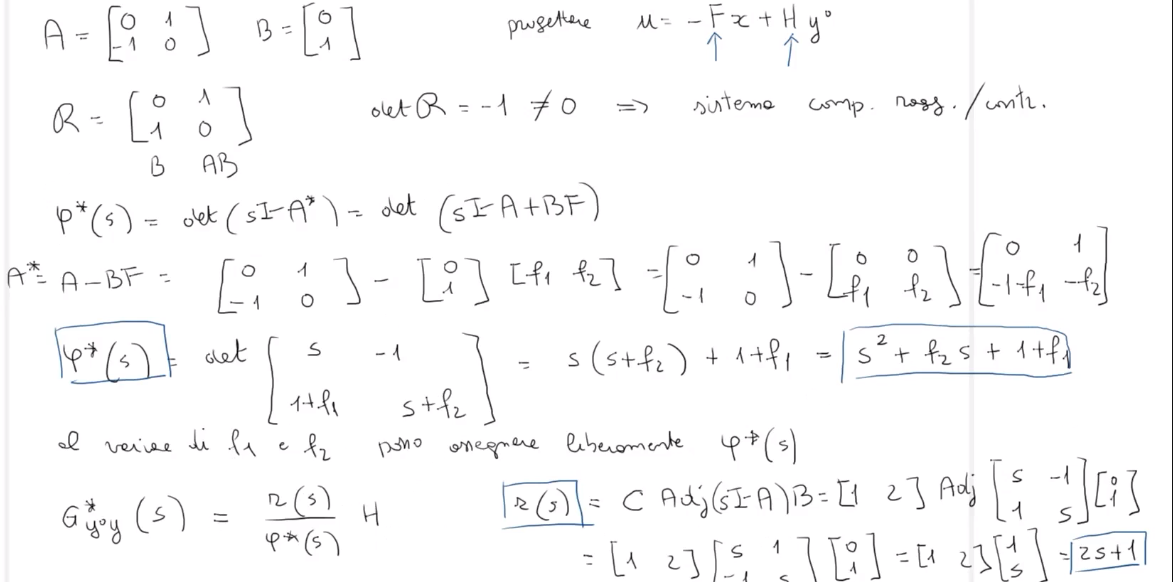 A = [0 1; -1 0] B = [0; 1] progettare u = -Fx + Hy°
R = [0 1; 1 0] det R = -1 ≠ 0 => sistema comp. ragg./contr.
B AB
φ*(s) = det(sI-A*) = det (sI-A+BF)
A* = A-BF = [0 1; -1 0] - [0; 1] [f1 f2] = [0 1; -1 0] - [0 0; f1 f2] = [0 1; -1-f1 -f2]
φ*(s) = det [s -1; 1+f1 s+f2] = s(s+f2) + 1+f1 = s² + f2 s + 1+f1
al variare di f1 e f2 posso assegnare liberamente φ*(s)
G*y°y(s) = r(s)/φ*(s) H r(s) = C Adj(sI-A)B = [1 2] Adj [s -1; 1 s] [0; 1]
= [1 2] [s 1; -1 s] [0; 1] = [1 2] [1; s] = 2s+1